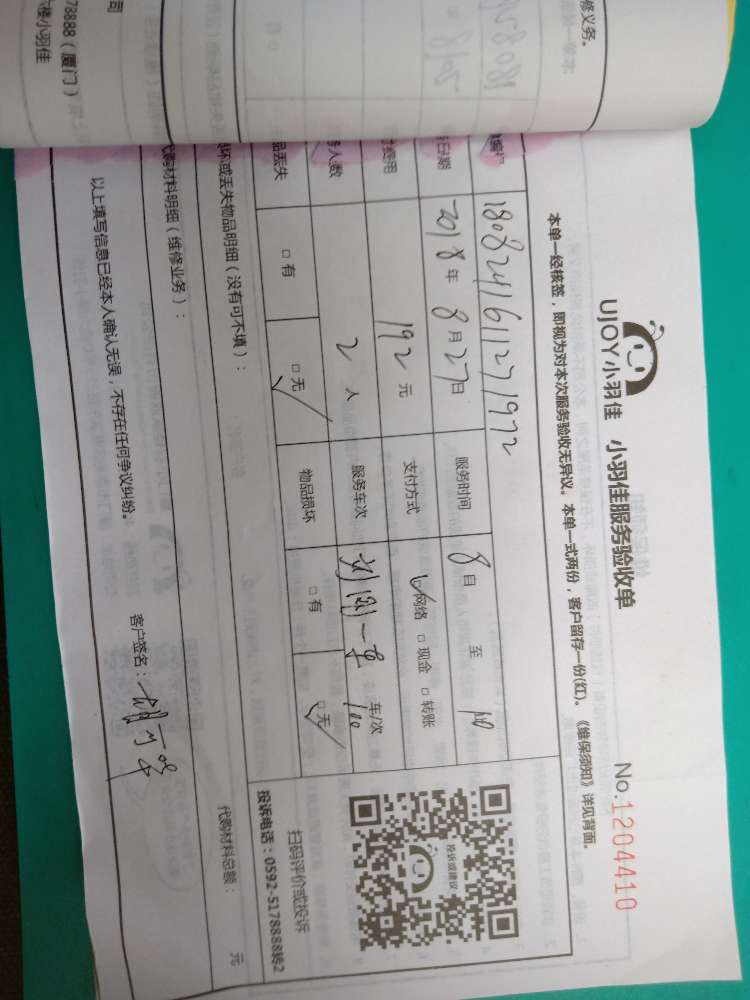 修义务。
司
78888（厦门）
楼小羽佳
UJOY小羽佳 小羽佳服务验收单
No.1204410
本单一经核签，即视为对本次服务验收无异议。本单一式两份，客户留存一份(红)。《维保须知》详见背面。
1808241611271972
日期 2018年8月27日 服务时间 8 至
费用 192元 支付方式 网络 □现金 □转账
人数 2人 服务车次 车/次
品丢失 □有 □无 物品损坏 □有 □无
坏或丢失物品明细（没有可不填）：
代购材料明细（维修业务）：
代购材料总额： 元
以上填写信息已经本人确认无误，不存在任何争议纠纷。 客户签名：
投诉或建议
扫码评价或投诉
投诉电话：0592-5178888转2